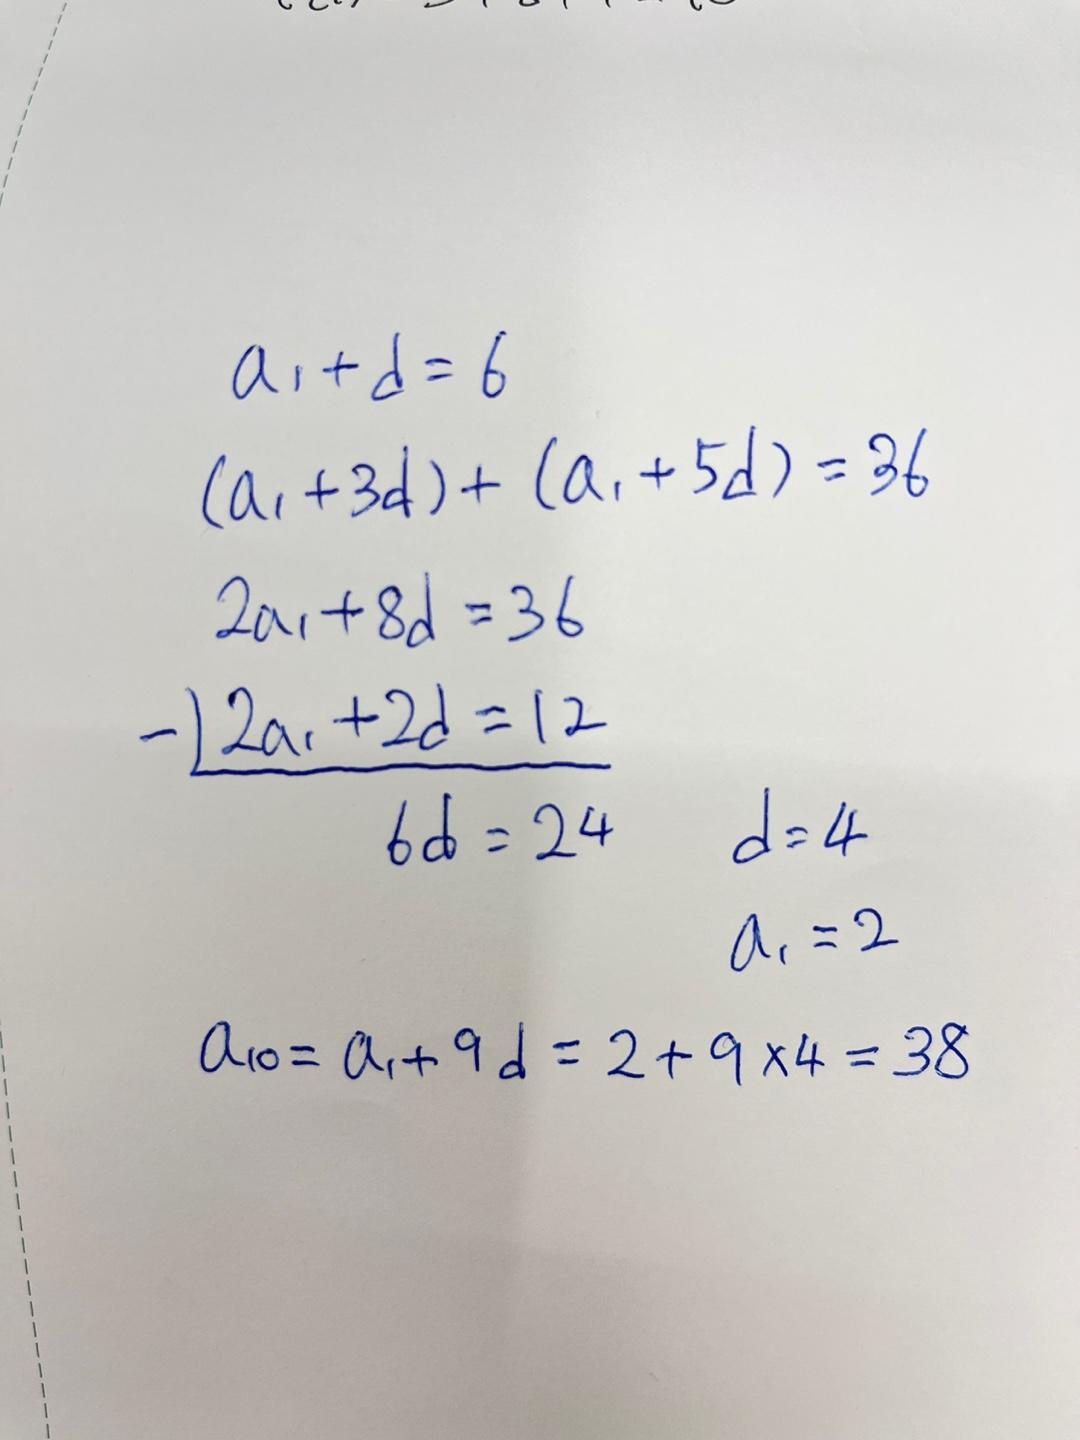 a₁+d=6
(a₁+3d)+(a₁+5d)=36
2a₁+8d=36
-)2a₁+2d=12
6d=24 d=4
a₁=2
a₁₀=a₁+9d=2+9×4=38